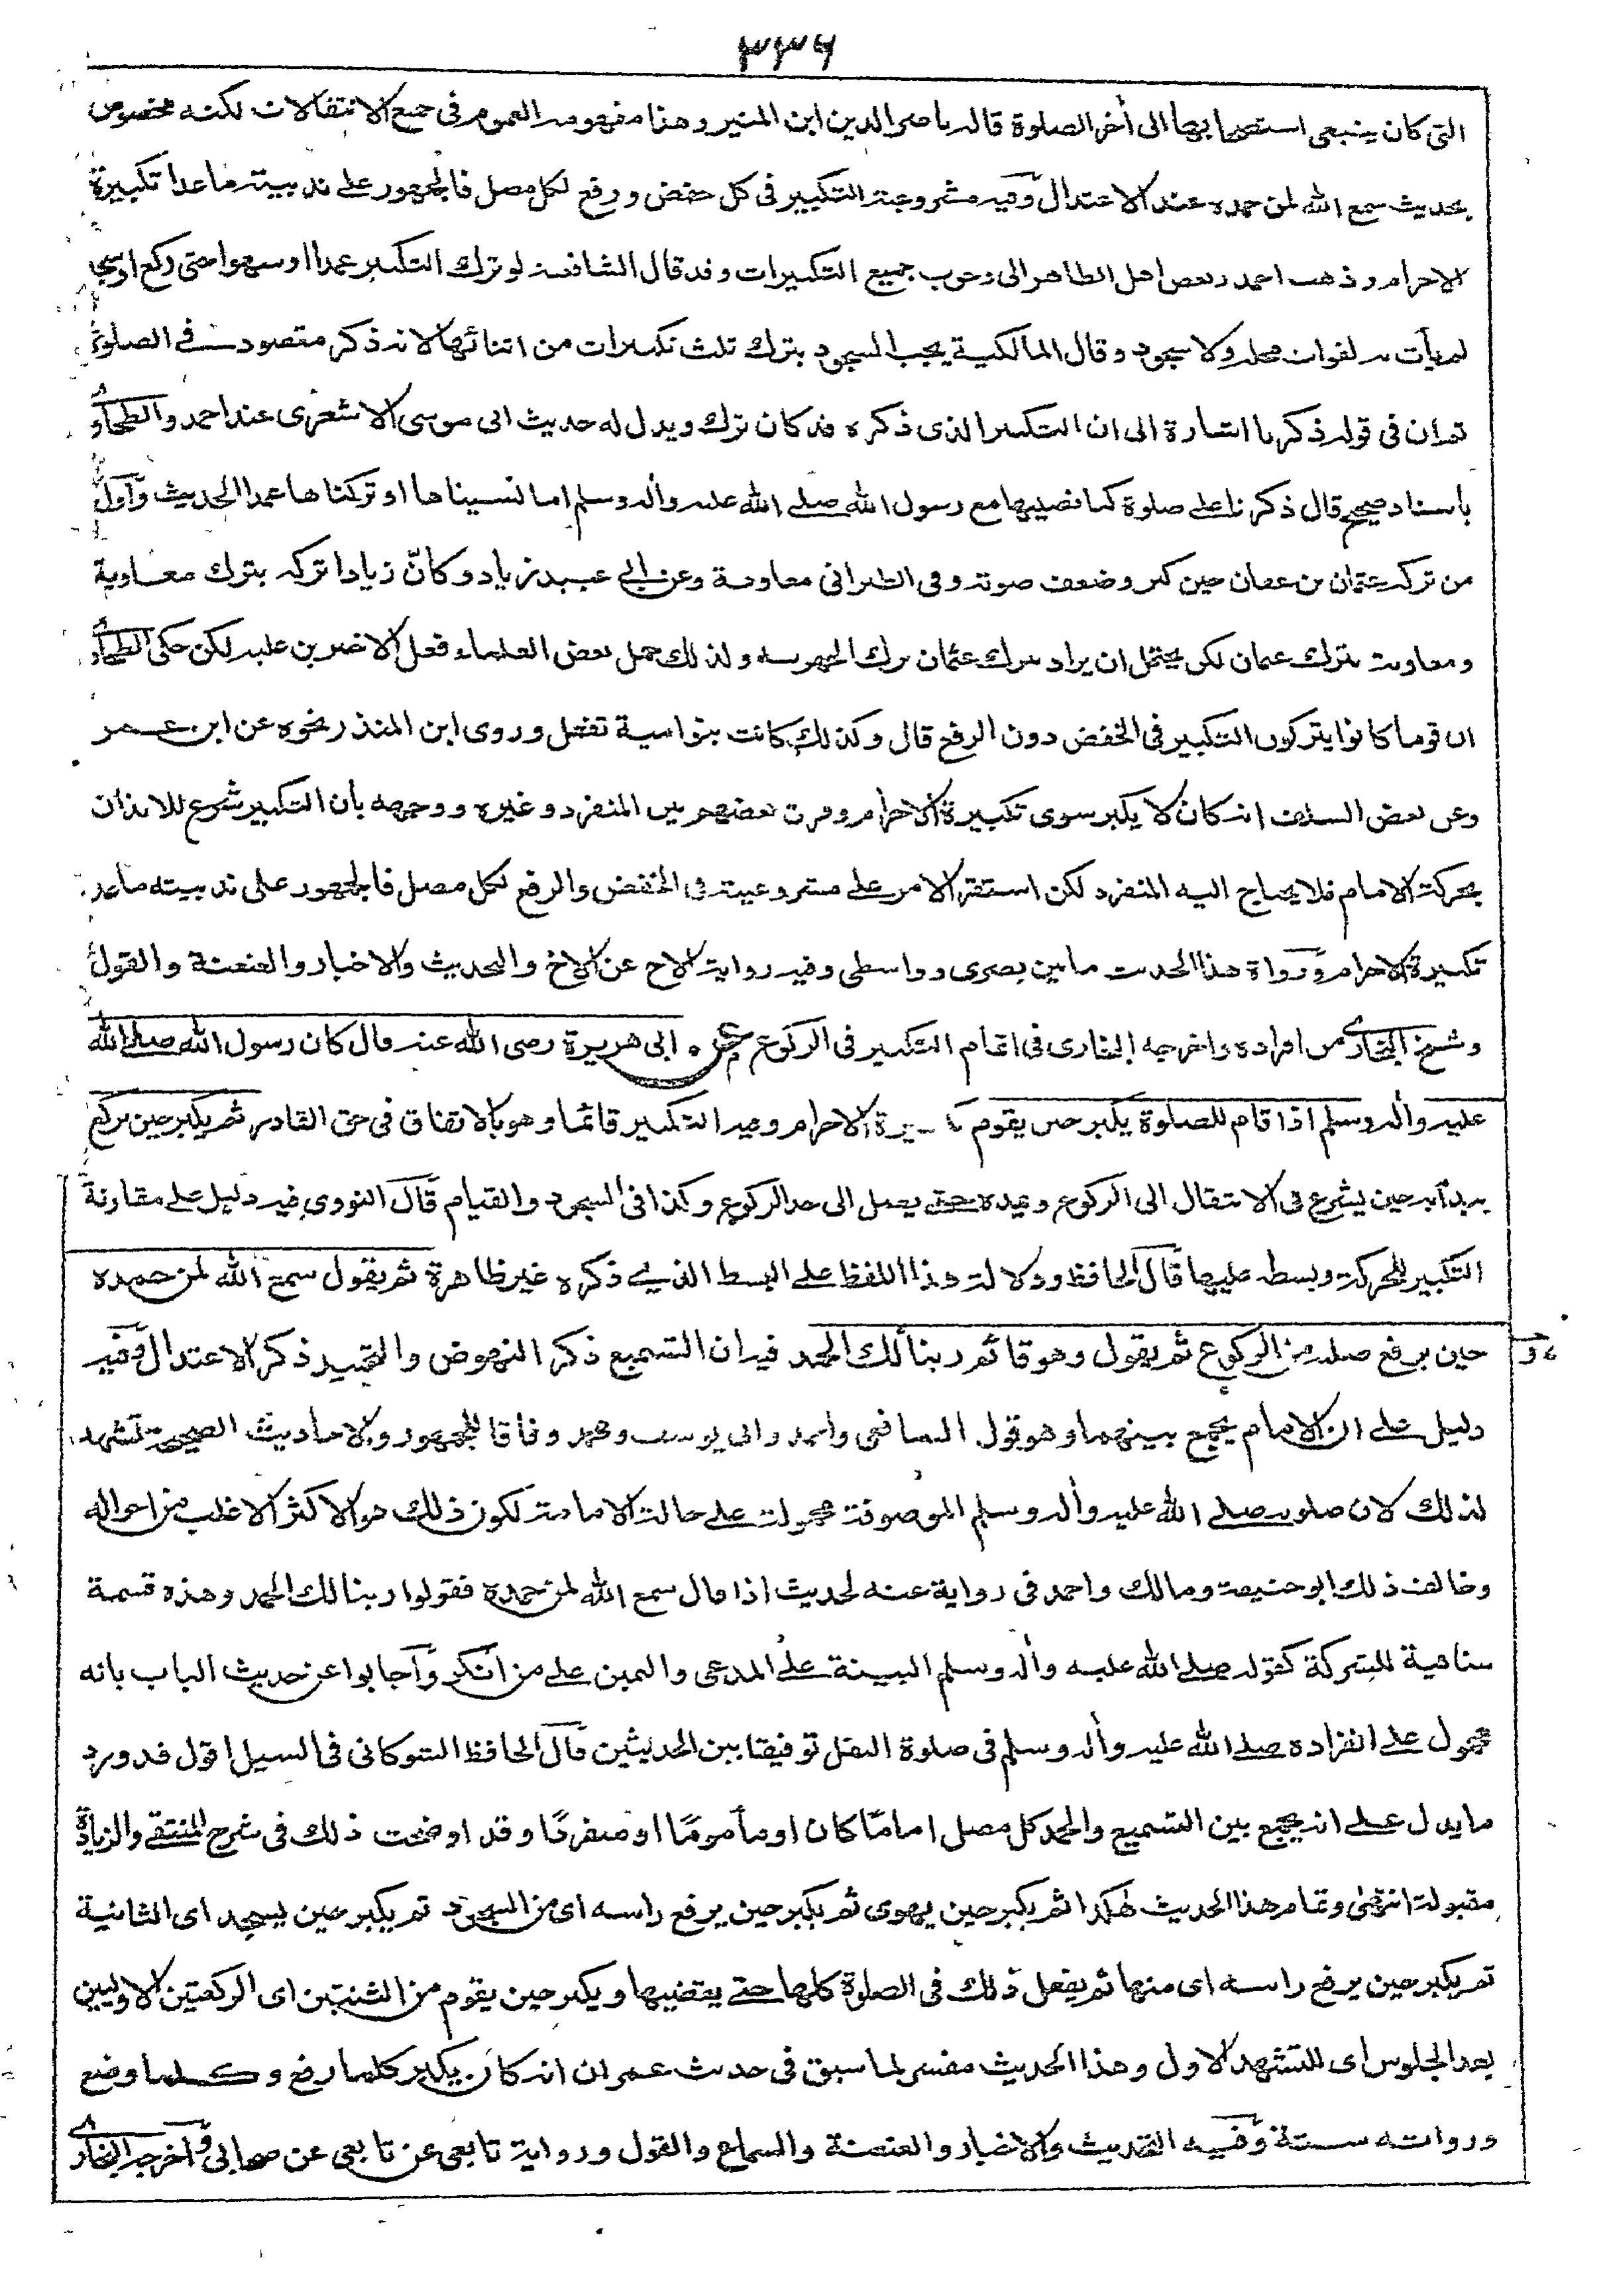 ٣٣٦
التى كان ينبغى استصحابها الى أخر الصلوة قاله ناصر الدين ابن المنير وهذا مفهومه العموم فى جميع الانتقالات لكنه مخصوص
بحديث سمع الله لمن حمده عند الاعتدال وفيه مشروعية التكبير فى كل خفض ورفع لكل مصل فالجمهور على ندبيته ما عدا تكبيرة
الاحرام وذهب احمد وبعض اهل الظاهر الى وجوب جميع التكبيرات وقد قال الشافعية لو ترك التكبير عمدا او سهوا حتى ركع او سجد
لم يأت به لفوات محله ولا سجود وقال المالكية يجب السجود بترك ثلث تكبيرات من اثنائها لانه ذكر مقصود فى الصلوة
ثم ان فى قوله ذكرنا اشارة الى ان التكبير الذى ذكره قد كان ترك ويدل له حديث ابى موسى الاشعرى عند احمد والطحاوى
بأسناد صحيح قال ذكرنا على صلوة كنا نصليها مع رسول الله صلى الله عليه وأله وسلم اما نسيناها او تركناها عمدا الحديث وأول
من تركه عثمان بن عفان حين كبر وضعف صوته وفى الطبرانى معاوية وعن ابى عبيد زياد وكأنّ زيادا تركه بترك معاوية
ومعاوية بترك عثمان لكن يحتمل ان يراد بترك عثمان ترك الجهر به ولذلك حمل بعض العلماء فعل الاخيرين عليه لكن حكى الطحاوى
ان قوما كانوا يتركون التكبير فى الخفض دون الرفع قال وكذلك كانت بنو امية تفعل وروى ابن المنذر نحوه عن ابن عمر
وعن بعض السلف انه كان لا يكبر سوى تكبيرة الاحرام وفرق بعضهم بين المنفرد وغيره ووجهه بأن التكبير شرع للايذان
بحركة الامام فلا يحتاج اليه المنفرد لكن استقر الامر على مشروعيته فى الخفض والرفع لكل مصل فالجمهور على ندبيته ما عدا
تكبيرة الاحرام ورواة هذا الحديث ما بين بصرى وواسطى وفيه رواية الاخ عن الاخ والتحديث والاخبار والعنعنة والقول
وشيخ البخارى من افراده واخرجه البخارى فى اتمام التكبير فى الركوع عن ابى هريرة رضى الله عنه قال كان رسول الله صلى الله
عليه وأله وسلم اذا قام للصلوة يكبر حين يقوم يرة الاحرام وفيه التكبير قائما وهو بالاتفاق فى حق القادر ثم يكبر حين يركع
يبدأ به حين يشرع فى الانتقال الى الركوع ويمده حتى يصل الى حد الركوع وكذا فى السجود والقيام قال النووى فيه دليل على مقارنة
التكبير للحركة وبسطه عليها قال الحافظ ودلالة هذا اللفظ على البسط الذى ذكره غير ظاهرة ثم يقول سمع الله لمن حمده
حين يرفع صلبه من الركوع ثم يقول وهو قائم ربنا لك الحمد فيه ان التسميع ذكر النهوض والتحميد ذكر الاعتدال وفيه
دليل على ان الامام يجمع بينهما وهو قول الشافعى واحمد وابى يوسف ومحمد وفاقا للجمهور والاحاديث الصحيحة تشهد
لذلك لان صلوته صلى الله عليه وأله وسلم الموصوفة محمولة على حالة الامامة لكون ذلك هو الاكثر الاغلب من احواله
وخالف ذلك ابو حنيفة ومالك واحمد فى رواية عنه لحديث اذا قال سمع الله لمن حمده فقولوا ربنا لك الحمد وهذه قسمة
منافية للشركة كقوله صلى الله عليه وأله وسلم البينة على المدعى واليمين على من انكر وأجابوا عن حديث الباب بانه
محمول على انفراده صلى الله عليه وأله وسلم فى صلوة النفل توفيقا بين الحديثين قال الحافظ الشوكانى فى السيل اقول قد ورد
ما يدل على انه يجمع بين التسميع والحمد كل مصل اماما كان او مأموما او منفردا وقد اوضحت ذلك فى شرح المنتقى والزيادة
مقبولة انتهى وتمام هذا الحديث هكذا ثم يكبر حين يهوى ثم يكبر حين يرفع راسه اى من السجود ثم يكبر حين يسجد اى الثانية
ثم يكبر حين يرفع راسه اى منها ثم يفعل ذلك فى الصلوة كلها حتى يقضيها ويكبر حين يقوم من الثنتين اى الركعتين الاوليين
بعد الجلوس اى للتشهد الاول وهذا الحديث مفسر لما سبق فى حديث عمران انه كان يكبر كلما رفع وكلما وضع
ورواته ستة وفيه التحديث والاخبار والعنعنة والسماع والقول ورواية تابعى عن تابعى عن صحابى وأخرجه البخارى